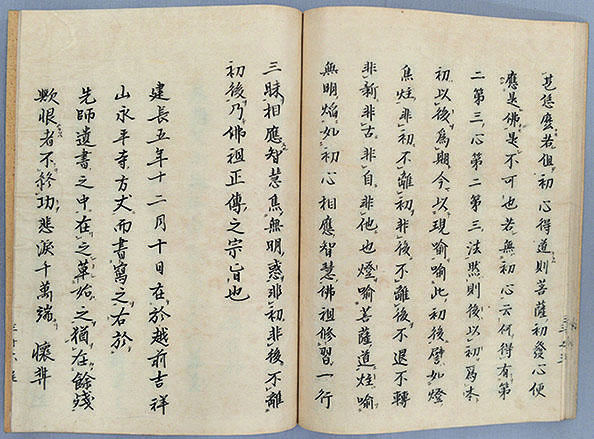 恁麼若但初心得道則菩薩初發心便
應是佛是不可也若無初心云何得有第
二第三心第二第三法然則後以初爲本
初以後爲期今以現喩喩此初後譬如燈
焦炷非初不離初非後不離後不退不轉
非新非古非自非他也燈喩菩薩道炷喩
無明焔如初心相應智慧佛祖修習一行
三昧相應智慧焦無明惑非初非後不離
初後乃佛祖正傳之宗旨也
建長五年十二月十日在於越前吉祥
山永平寺方丈而書寫之右於
先師遺書之中在之草始之猶在餘殘
歟眼者不終功悲涙千萬端 懷弉